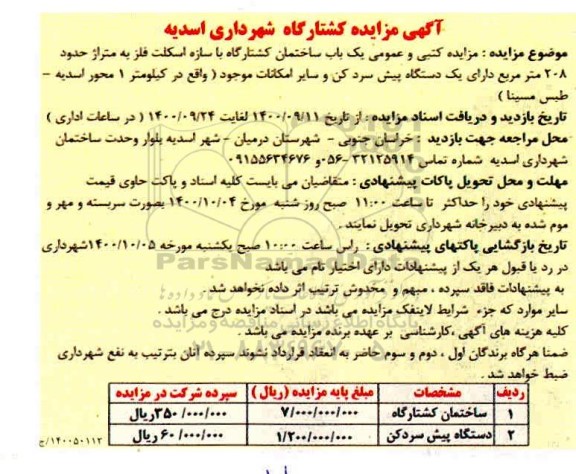 آگهی مزایده کشتارگاه شهرداری اسدیه
موضوع مزایده : مزایده کتبی و عمومی یک باب ساختمان کشتارگاه با سازه اسکلت فلز به متراژ حدود
۲۰۸ متر مربع دارای یک دستگاه پیش سرد کن و سایر امکانات موجود ( واقع در کیلومتر ۱ محور اسدیه –
طبس مسینا )
تاریخ بازدید و دریافت اسناد مزایده : از تاریخ ۱۴۰۰/۰۹/۱۱ لغایت ۱۴۰۰/۰۹/۲۴ ( در ساعات اداری )
محل مراجعه جهت بازدید : خراسان جنوبی – شهرستان درمیان – شهر اسدیه بلوار وحدت ساختمان
شهرداری اسدیه شماره تماس ۳۲۱۲۵۹۱۴-۰۵۶ و ۰۹۱۵۵۶۳۴۶۷۶
مهلت و محل تحویل پاکات پیشنهادی : متقاضیان می بایست کلیه اسناد و پاکت حاوی قیمت
پیشنهادی خود را حداکثر تا ساعت ۱۱:۰۰ صبح روز شنبه مورخ ۱۴۰۰/۱۰/۰۴ بصورت سربسته و مهر و
موم شده به دبیرخانه شهرداری تحویل نمایند .
تاریخ بازگشایی پاکتهای پیشنهادی : راس ساعت ۱۰:۰۰ صبح یکشنبه مورخه ۱۴۰۰/۱۰/۰۵شهرداری
در رد یا قبول هر یک از پیشنهادات دارای اختیار تام می باشد
به پیشنهادات فاقد سپرده ، مبهم و مخدوش ترتیب اثر داده نخواهد شد .
سایر موارد که جزء شرایط لاینفک مزایده می باشد در اسناد مزایده درج می باشد .
کلیه هزینه های آگهی ،کارشناسی بر عهده برنده مزایده می باشد .
ضمنا هرگاه برندگان اول ، دوم و سوم حاضر به انعقاد قرارداد نشوند سپرده آنان بترتیب به نفع شهرداری
ضبط خواهد شد .
ردیف مشخصات مبلغ پایه مزایده (ریال ) سپرده شرکت در مزایده
۱ ساختمان کشتارگاه ۷/۰۰۰/۰۰۰/۰۰۰ ۳۵۰/۰۰۰/۰۰۰ریال
۲ دستگاه پیش سردکن ۱/۲۰۰/۰۰۰/۰۰۰ ۶۰/۰۰۰/۰۰۰ ریال
۱۴۰۰۵۰۱۱۲/ج
ParsNamadData